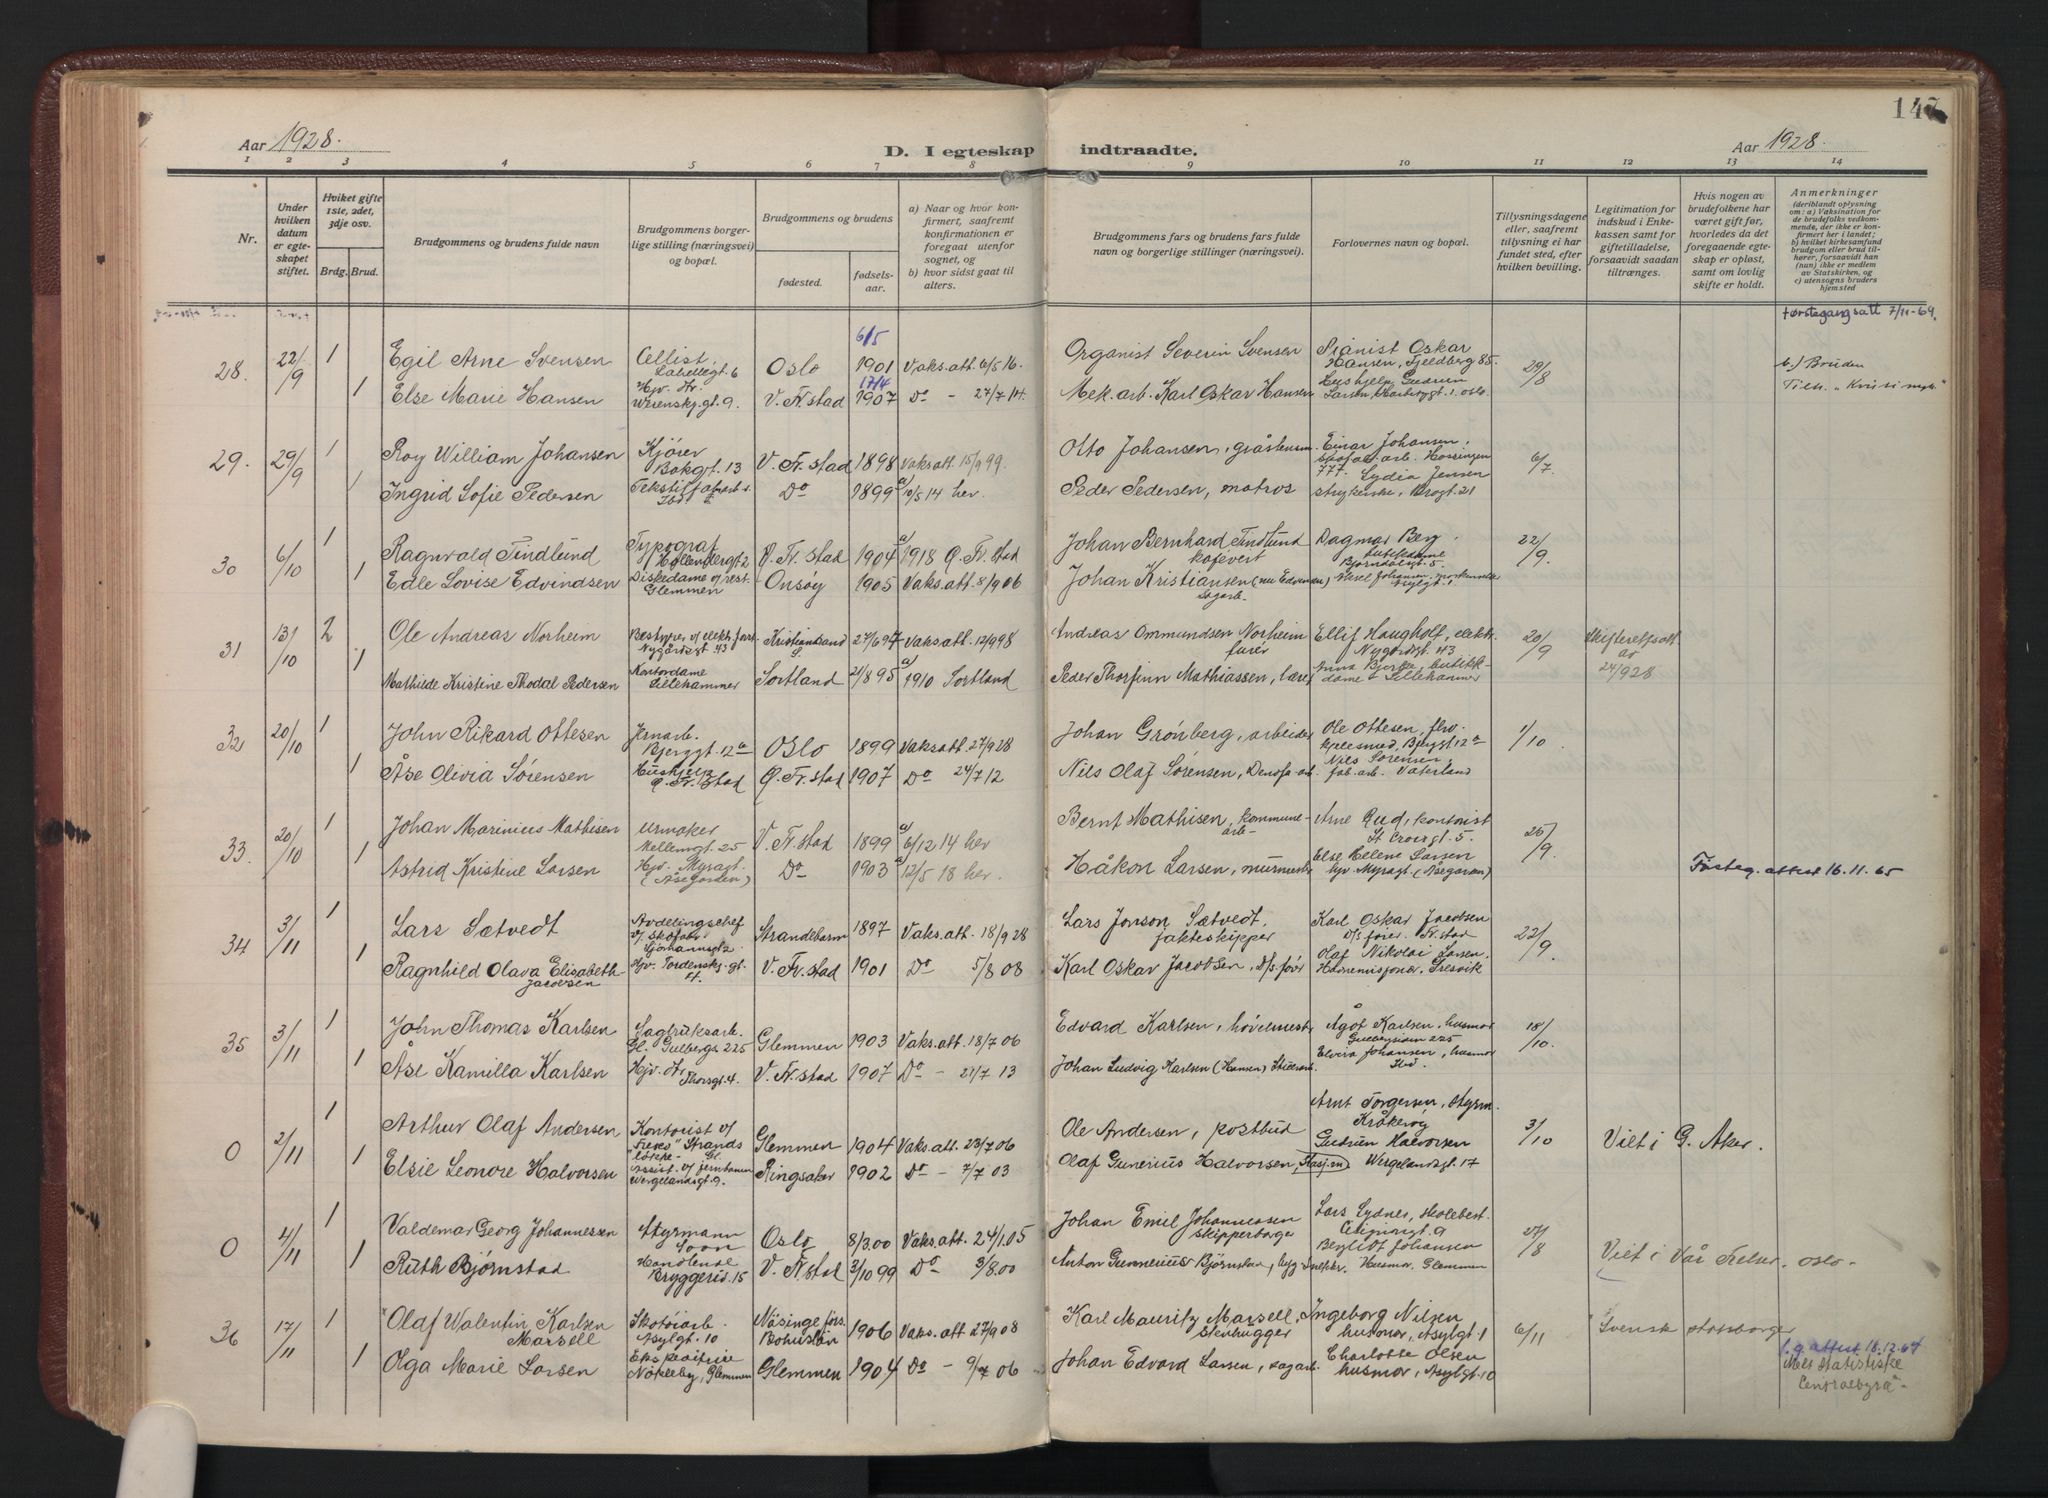 147
Aar 1928.
D. I egteskap indtraadte.
Aar 1928.
1 2 3 4 5 6 7 8 9 10 11 12 13 14
Nr.
Under hvilken datum er egteskapet stiftet.
Hviket gifte 1ste, 2det, 3dje osv.
Brdg. Brud.
Brudgommens og brudens fulde navn
Brudgommens og brudens borgerlige stilling (næringsvei) og bopæl.
Brudgommens og brudens
fødested.
fødselsaar.
a) Naar og hvor konfirmert, saafremt konfirmationen er foregaat utenfor sognet, og
b) hvor sidst gaat til alters.
Brudgommens fars og brudens fars fulde navn og borgerlige stillinger (næringsvei).
Forlovernes navn og bopæl.
Tillysningsdagene eller, saafremt tillysning ei har fundet sted, efter hvilken bevilling.
Legitimation for indskud i Enkekassen samt for giftetilladelse, forsaavidt saadan tiltrænges.
Hvis nogen av brudefolkene har været gift før, hvorledes da det foregaaende egteskap er opløst, samt om lovlig skifte er holdt.
Anmerkninger (deriblandt oplysning om: a) Vaksination for de brudefolks vedkommende, der ikke er konfirmert her i landet; b) hvilket kirkesamfund brudgom eller brud tilhører, forsaavidt han (nun) ikke er medlem av Statskirken, og c) utensogns bruders hjemsted
28. 22/9 1 Egil Arne Svensen Cellist, 6 Oslo 6/5 1901 Vaks.att. 6/5 16. Organist Severin Svensen Pianist Oskar Hansen, 85. 29/8 førstegangsatt 7/11-69.
1 Else Marie Hansen Hjv. dtr. Werenskj.gt. 9. V. Fr.stad 17/4 1907 Do - 27/7 14. Mek. arb. Karl Oskar Hansen Hushjelp Gudrun Larsen, Oslo. b.) Bruden
29. 29/9 1 Roy William Johansen Kjører Bakgt. 13 V. Fr.stad 1898 Vaksatt. 15/9 99. Otto Johansen, gråstensm. Einar Johansen, 6/7
1 Ingrid Sofie Pedersen Do 1899 a) 10/5 14 her. Peder Pedersen, matros 777. Lydia Jensen strykerske, Brogt. 21
30 6/10 1 Ragnvald Findlund Typograf Hollenderg. 2 Ø. Fr.stad 1904 a) 1918 Ø. Fr.stad Johan Bernhard Findlund kafévert Dagmar Berg butikdame Bjørndalsgt. 5. 22/9.
1 Edle Lovise Edvindsen Diskedame v/ rest. Glemmen Onsøy 1905 Vaks.att. 8/9 06 Johan Kristiansen (nu Edvinsen) Sagarb.
31 13/10 2 Ole Andreas Norheim Bestyrer v/ elektr. forr. Nygårdsgt. 43 Kristiansand S. 27/6 97 Vaks.att. 12/9 98 Andreas Ommundsen Norheim furer Ellif Haugholt, elektr. Nygårdsgt. 43 20/9 Skifterettsatt av 24/9 28
1 Mathilde Kristine Thodal Pedersen Kontordame Lillehammer Sortland 21/8 95 a) 1910 Sortland Peder Thorfinn Mathiassen, lærer Anna Bjerke, butikkdame - Lillehammer
32 20/10 1 John Rikard Ottesen Jernarb. Bjerggt. 12a Oslo 1899 Vaksatt. 27/9 28 Johan Grønberg, arbeider Ole Ottesen, fhv. kjelesmed, Bjerggt. 12a 1/10
1 Åse Olivia Sørensen Hushjelp Ø. Fr.stad Ø. Fr.stad 1907 Do 24/7 12 Nils Olaf Sørensen, Denofa-arb. Nils Sørensen fab.arb. Vaterland
33. 20/10 1 Johan Marinius Mathisen Urmaker Mellemgt. 25 V. Fr.stad 1899 a) 6/12 14 her Bernt Mathisen, kommunearb- Arne Rud, kontorist St. Croixgt. 5. 25/9
1 Astrid Kristine Larsen Hjv. Myragt. (Åsegården) Do 1903 a) 12/5 18 her. Håkon Larsen, murmester Else Helene Larsen hjv. Myragt. (Åsegården) Førsteg. attest 16.11.65
34 3/11 1 Lars Sætvedt Avdelingschef v/ Skofabr. V. Strandebarm 1897 Vaks.att. 18/9 28 Lars Jonson Sætvedt, jakteskipper Karl Oskar Jacobsen D/s fører Fr.stad 22/9.
1 Ragnhild Olava Elisabeth Jacobsen Hjv. Tordenskj.gt. V. Fr.stad 1901 Do 5/8 08 Karl Oskar Jacobsen, D/s fører Olaf Nikolai Larsen, Havnemisjonær, Gresvik
35 3/11 1 John Thomas Karlsen Sagbruksarb. Gl. Gulbergs 225 Glemmen 1903 Vaks.att. 18/7 06 Edvard Karlsen, høvelmestr. Ågot Karlsen, husmor 225 18/10.
1 Åse Kamilla Karlsen Hjv. dtr. Thorsgt. 4. V. Fr.stad 1907 Do - 21/7 13 Johan Ludvig Karlsen (Hansen) Elvira Johansen, husmor Ibid.
0 2/11 1 Arthur Olaf Andersen Kontorist v/ Glemmen 1904 Vaks.att. 23/7 06 Ole Andersen, postbud Arnt Torgersen, styrm. Kråkerøy 3/10 Viet i Ø. Aker.
1 Elsie Leonore Halvorsen Assist. v/ jernbanen Wergelandsgt. 9. Ringsaker 1902 Do - 7/7 03 Olaf Gunerius Halvorsen, Stasj.m. Gudrun Halvorsen Wergelandsgt. 17
0 4/11 1 Valdemar Georg Johannessen Styrmann Soon Oslo 8/3.00 Vaks.att. 24/1.05 Johan Emil Johannessen skipperborge Lars Lydner, 27/8 Viet i Vår Frelser, Oslo -
1 Ruth Bjørnstad Handlende Bryggerid. 15 V. Fr.stad 3/10 99 Do 3/8.00 Anton Gunnerius Bjørnstad, Bergliot Johansen Husmor, Glemmen
36 17/11 1 Olaf Valentin Karlsen Marsell Skotøiarb. Asylgt. 10 Näsinge förs. Bohuslän 1906 Vaks.att. 27/9 08 Karl Mauritz Marsell, stenhugger Ingeborg Nilsen husmor, Asylgt. 1 6/11 Svensk statsborger
1 Olga Marie Larsen Ekspeditrice Nøkleby, Glemmen Glemmen 1904 Do - 9/7 06 Johan Edvard Larsen, sagarb. Charlotte Olsen husmor, Asylgt. 10 f.g. attest 18.12.64
Statistiske Centralbyrå -